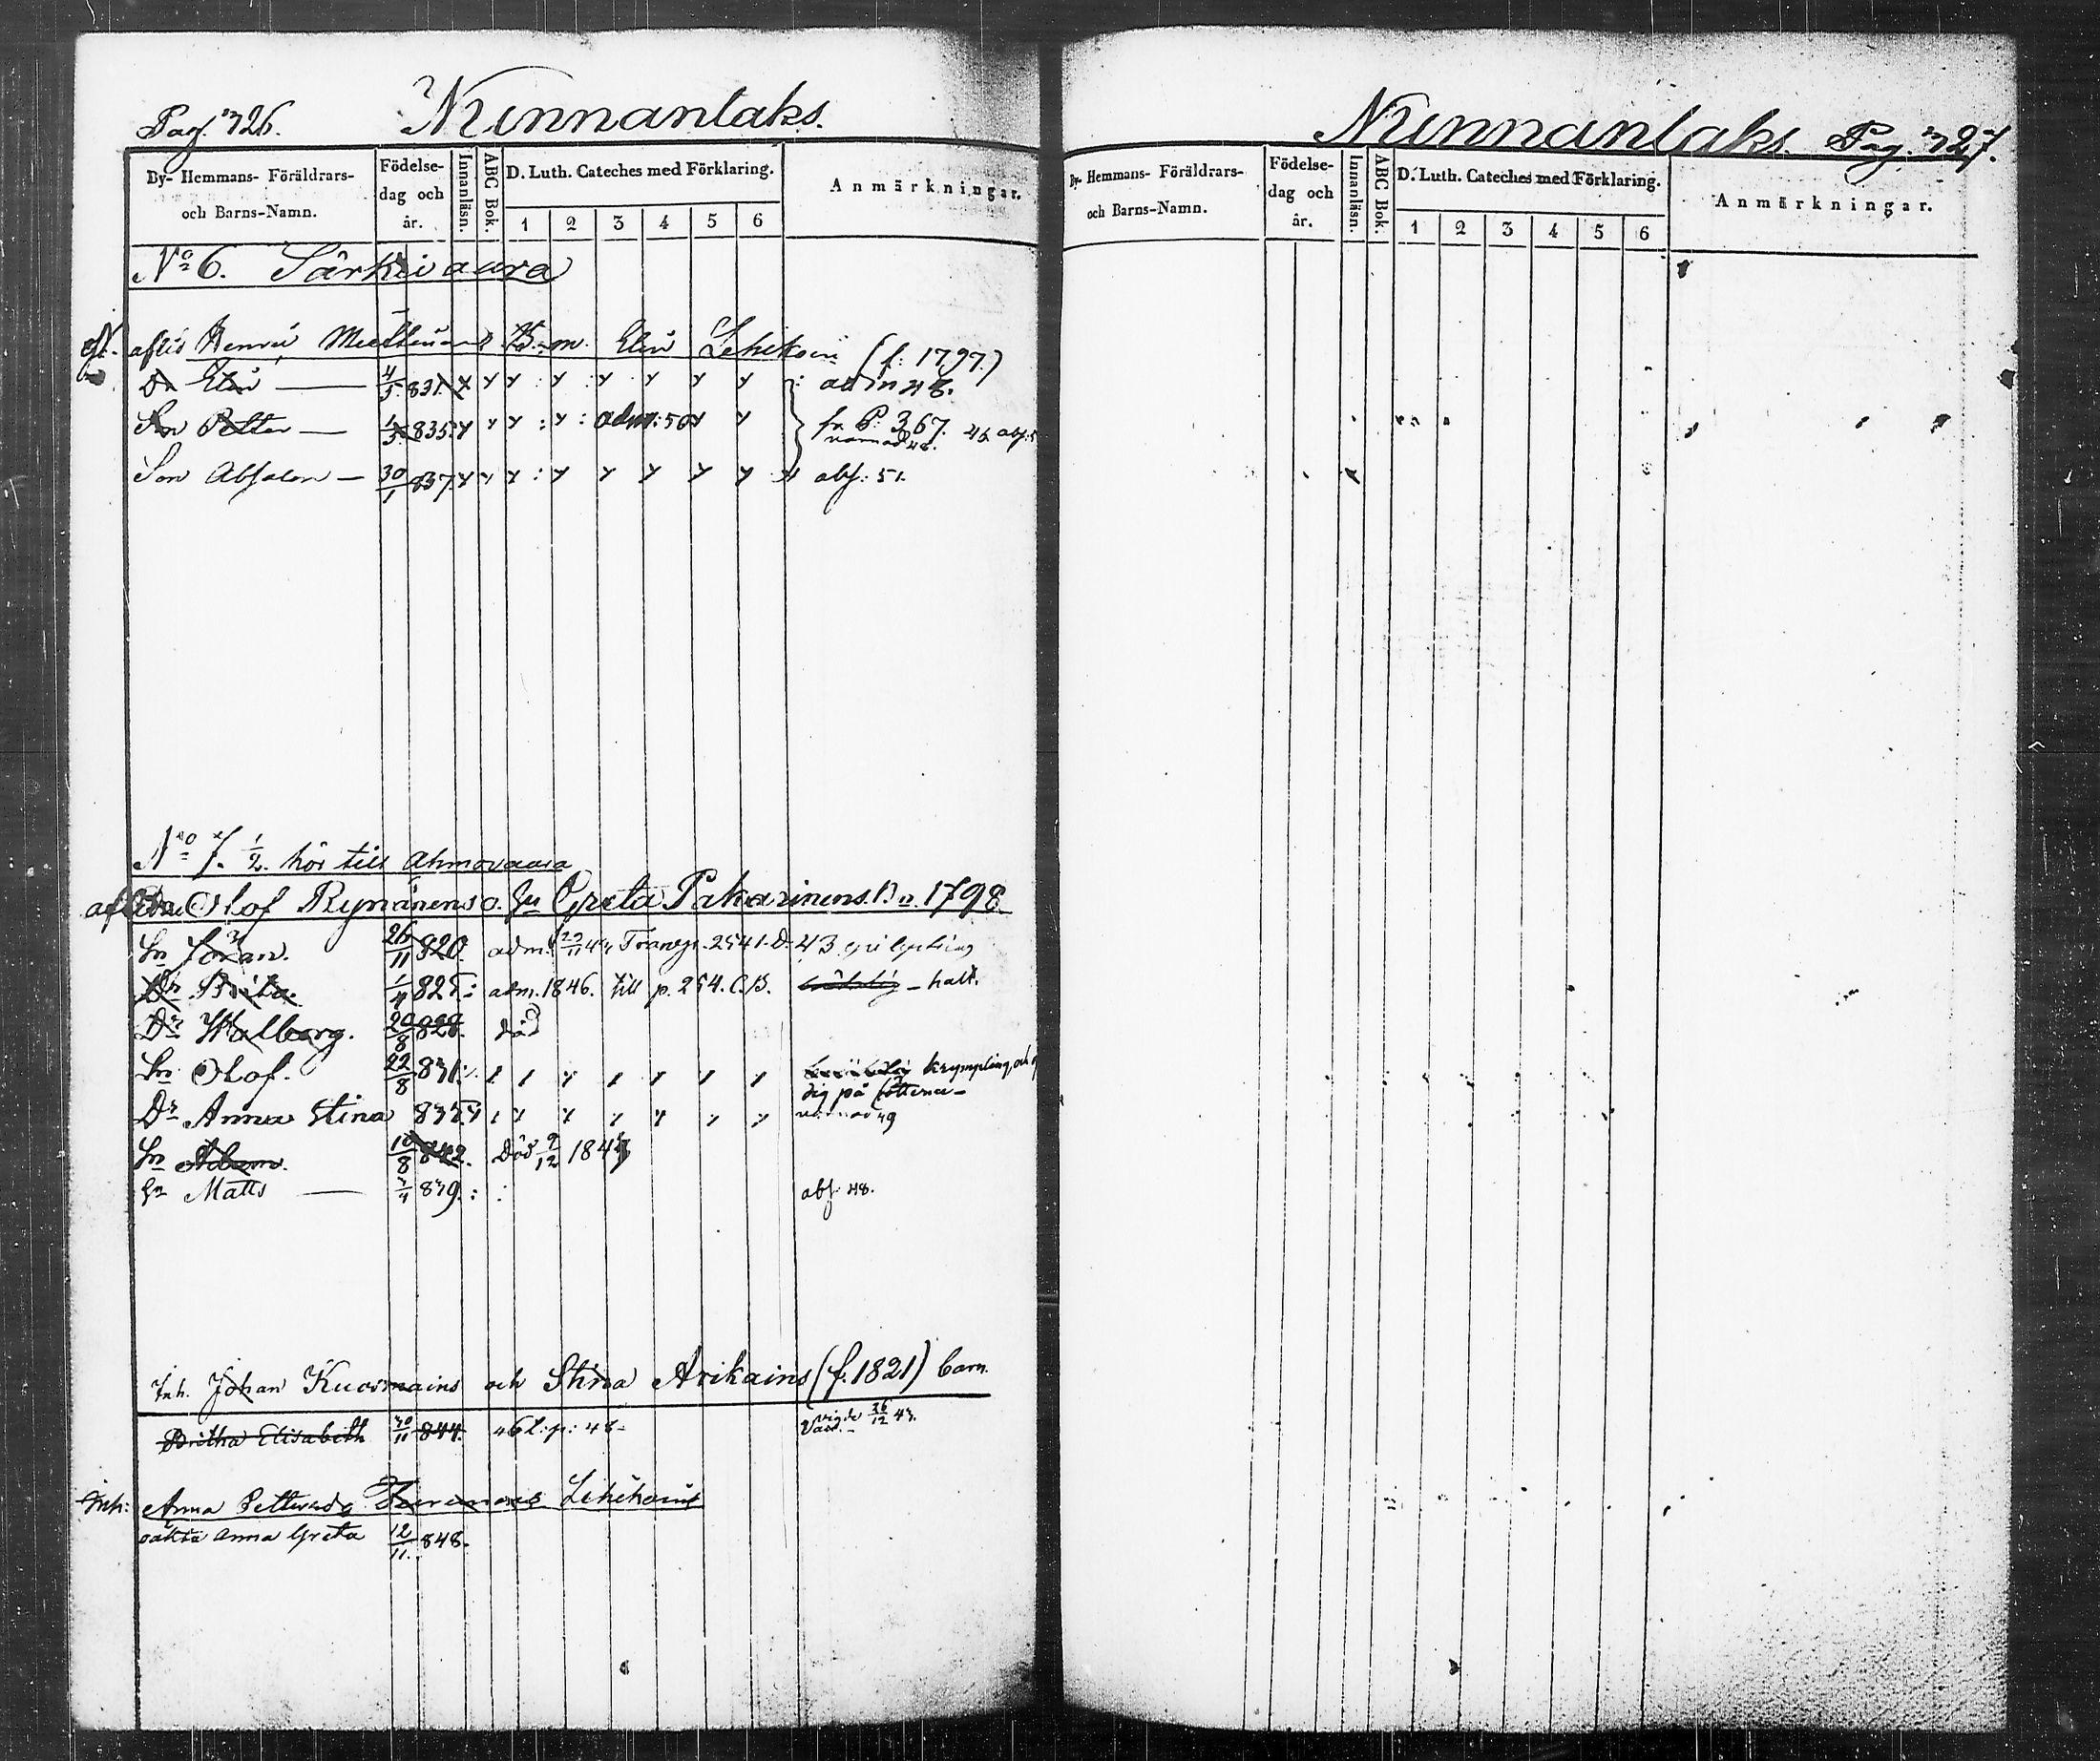 Pag. 326. Nunnanlaks.
By- Hemmans- Föräldrars- och Barns-Namn. Födelse- dag och år. Innanläsn. ABC Bok. D. Luth. Cateches med Förklaring. 1 2 3 4 5 6 Anmärkningar.
No 6. Särkivaara
aflid Henric B:m. Elin (f: 1797.)
Dr Elin 4/5 831. adm 48.
Sn Petter 835. adm: 50 fr P. 367.
Son Absalon 30/1 837. abs: 51.
No 7. 1/2. hör till Ahmovaara
Olof Rynänens o. hu Greta Pakarinens. Bn. 1798.
Sn Göran. 26/11 820. adm. 43
Dr Brita. 1/4 825. adm. 1846. till p. 254. C.B. halt.
Dr Walborg. 20/8 828. död
Sn Olof. 22/8 831. krympling, och
dig på fötterna
Dr Anna Stina 835. 49
Sn Adam. 10/8 842. Död 2/12 184
Sn Matts 3/4 839. abs. 48.
Inh. Johan Kuosmains och Stina Arikains (f. 1821) barn.
Britha Elisabeth 30/11 844. 46 l: p: 48 26/12 43.
Vacc.
Inh: Anna Pettersdr Lehikoin
oäkta Anna Greta 12/11. 848.
Nunnanlaks. Pag. 327.
By- Hemmans- Föräldrars- och Barns-Namn. Födelse- dag och år. Innanläsn. ABC Bok. D. Luth. Cateches med Förklaring. 1 2 3 4 5 6 Anmärkningar.